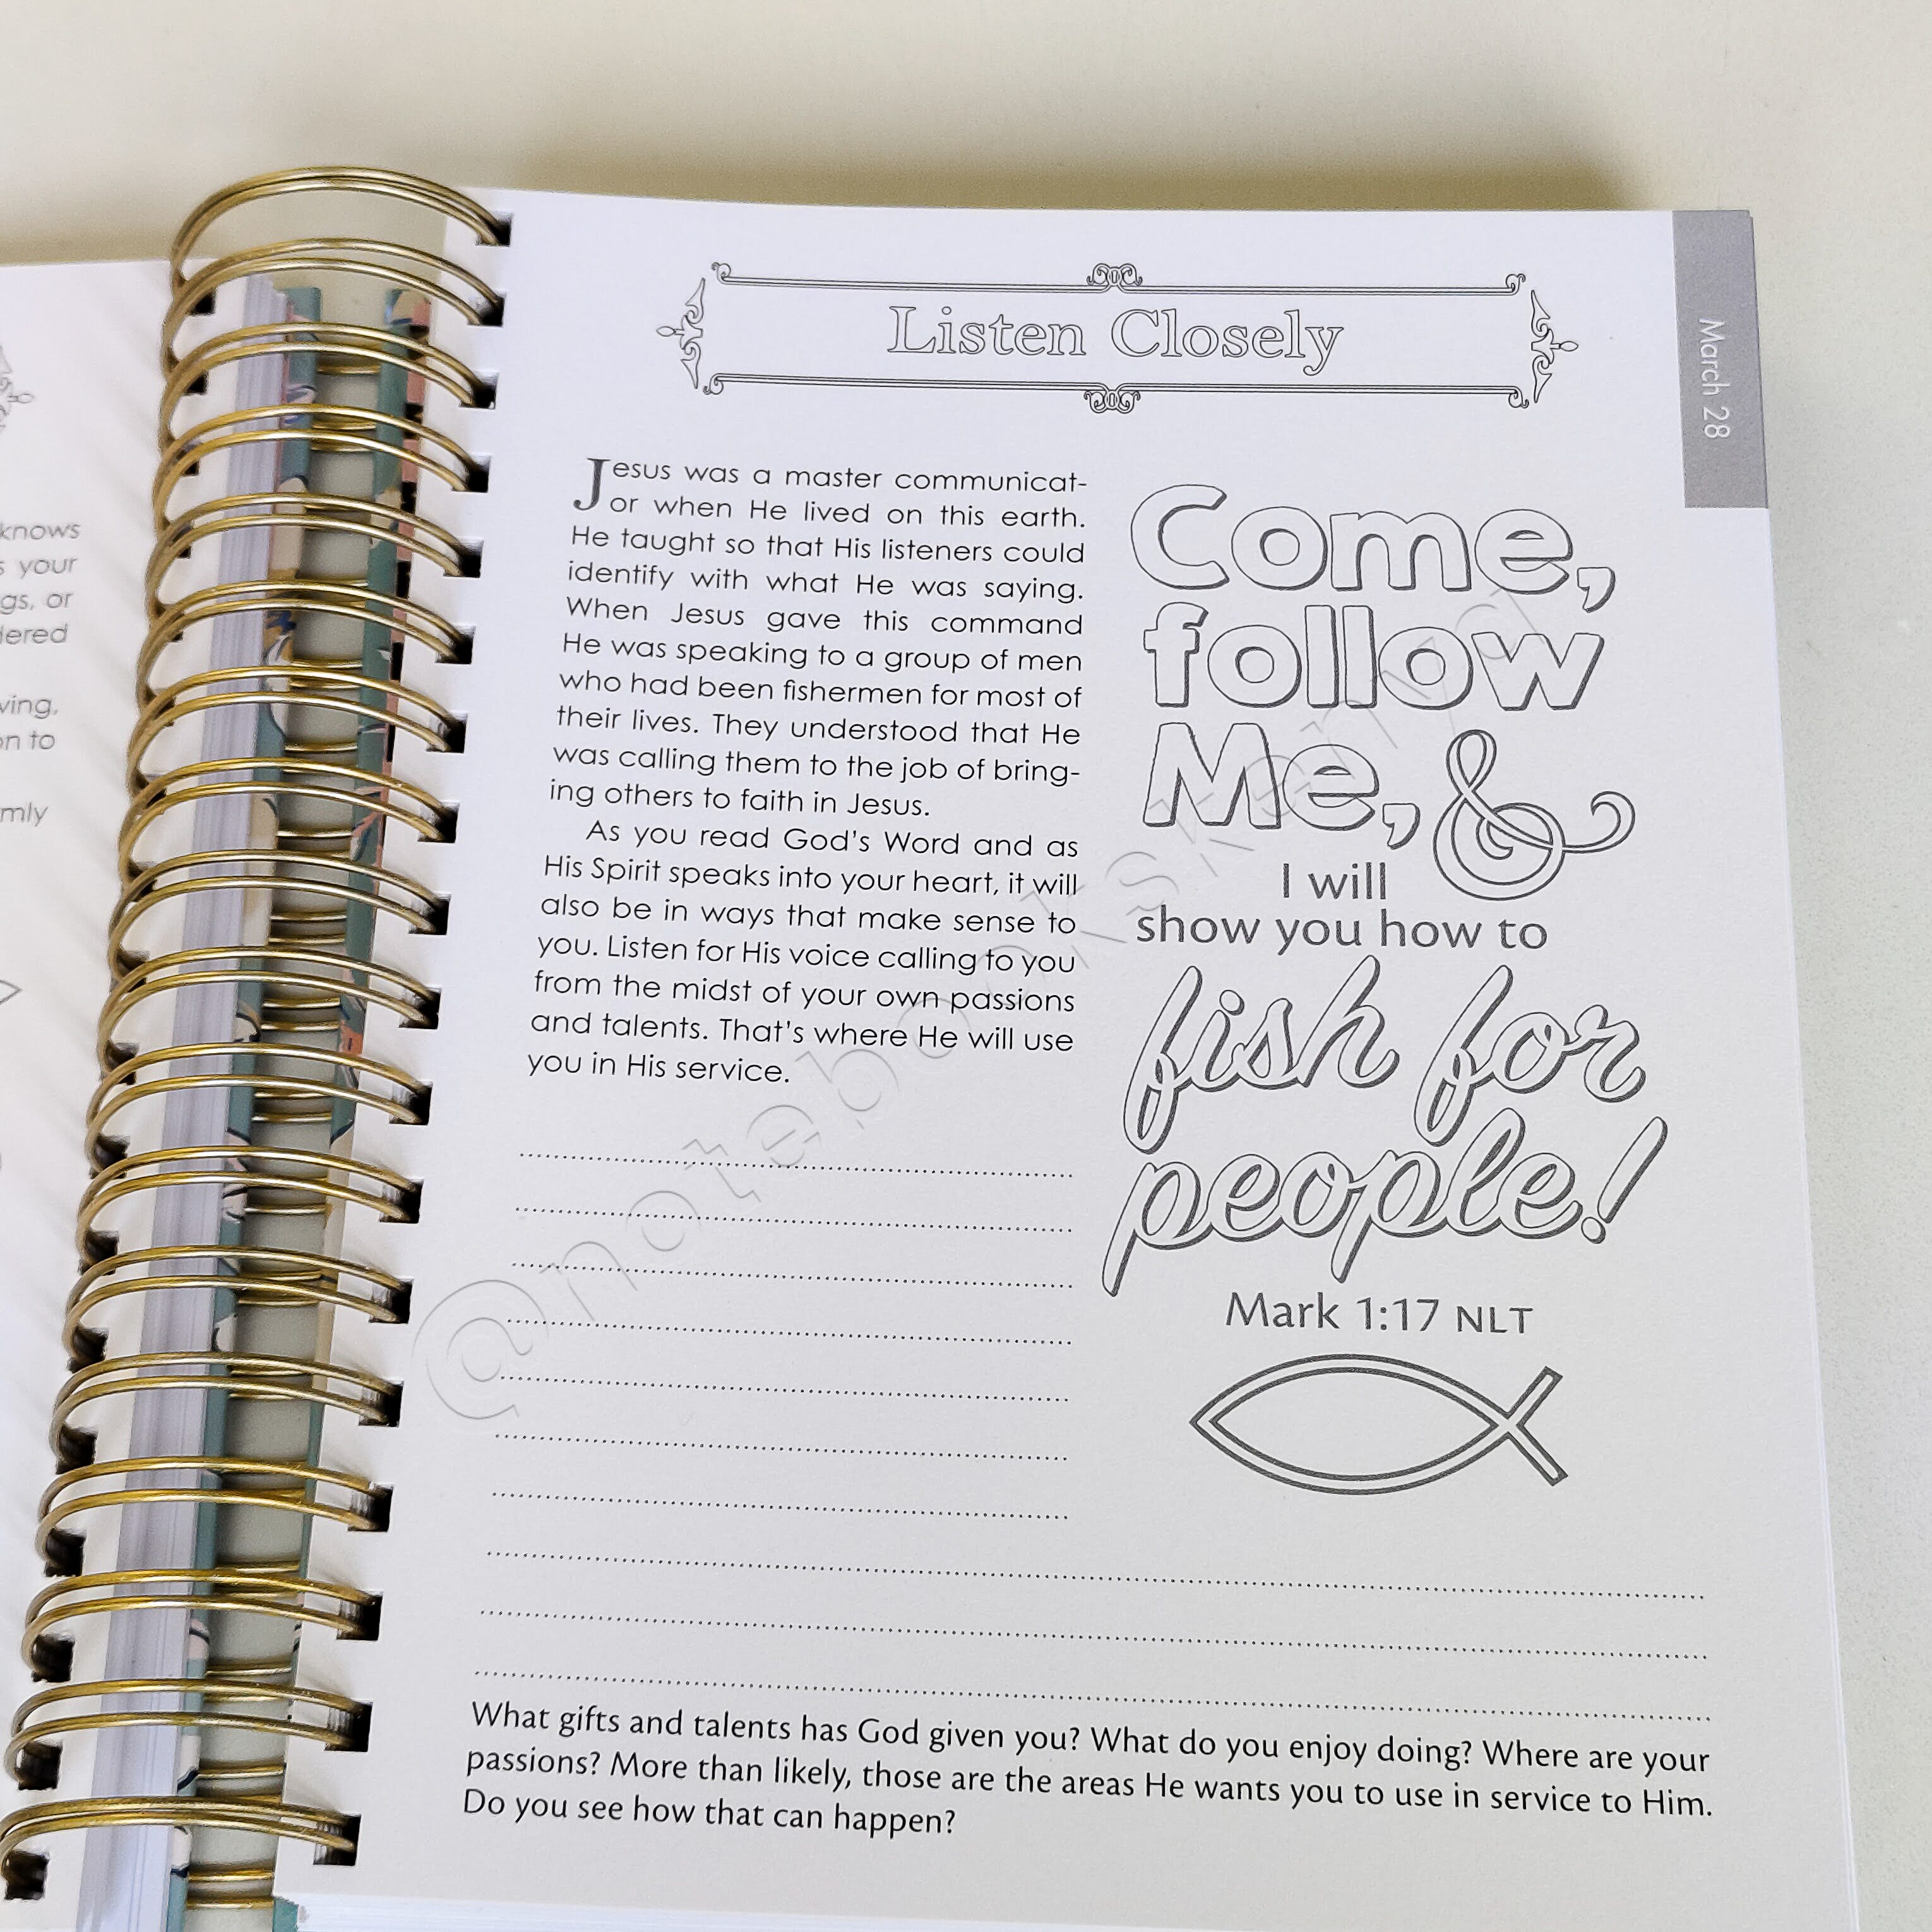 knows
your
gs, or
dered
ving,
on to
mly
Listen Closely
March 28
Jesus was a master communicat-
or when He lived on this earth.
He taught so that His listeners could
identify with what He was saying.
When Jesus gave this command
He was speaking to a group of men
who had been fishermen for most of
their lives. They understood that He
was calling them to the job of bring-
ing others to faith in Jesus.
As you read God's Word and as
His Spirit speaks into your heart, it will
also be in ways that make sense to
you. Listen for His voice calling to you
from the midst of your own passions
and talents. That's where He will use
you in His service.
Come,
follow
Me, &
I will
show you how to
fish for
people!
Mark 1:17 NLT
What gifts and talents has God given you? What do you enjoy doing? Where are your
passions? More than likely, those are the areas He wants you to use in service to Him.
Do you see how that can happen?
@notebookskenya